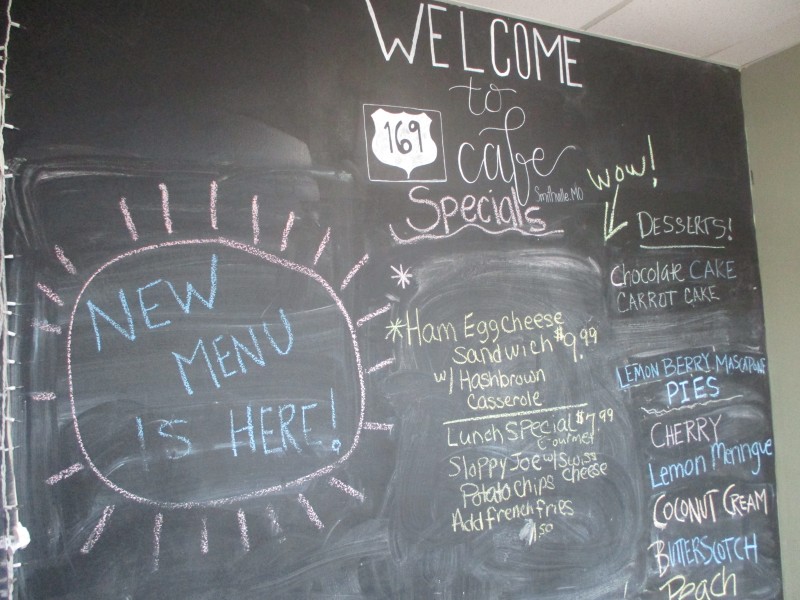 WELCOME
to
169
cafe
Smithville, MO
Specials
NEW
MENU
IS HERE!
*
*Ham Egg cheese
Sandwich $9.99
w/ Hashbrown
Casserole
Lunch Special $7.99
Gourmet
Sloppy Joe w/ Swiss
Cheese
Potato Chips
Add french fries
1.50
WOW!
DESSERTS!
Chocolate CAKE
CARROT CAKE
LEMON BERRY MASCARPONE
PIES
CHERRY
Lemon Meringue
COCONUT CREAM
BUTTERSCOTCH
Peach